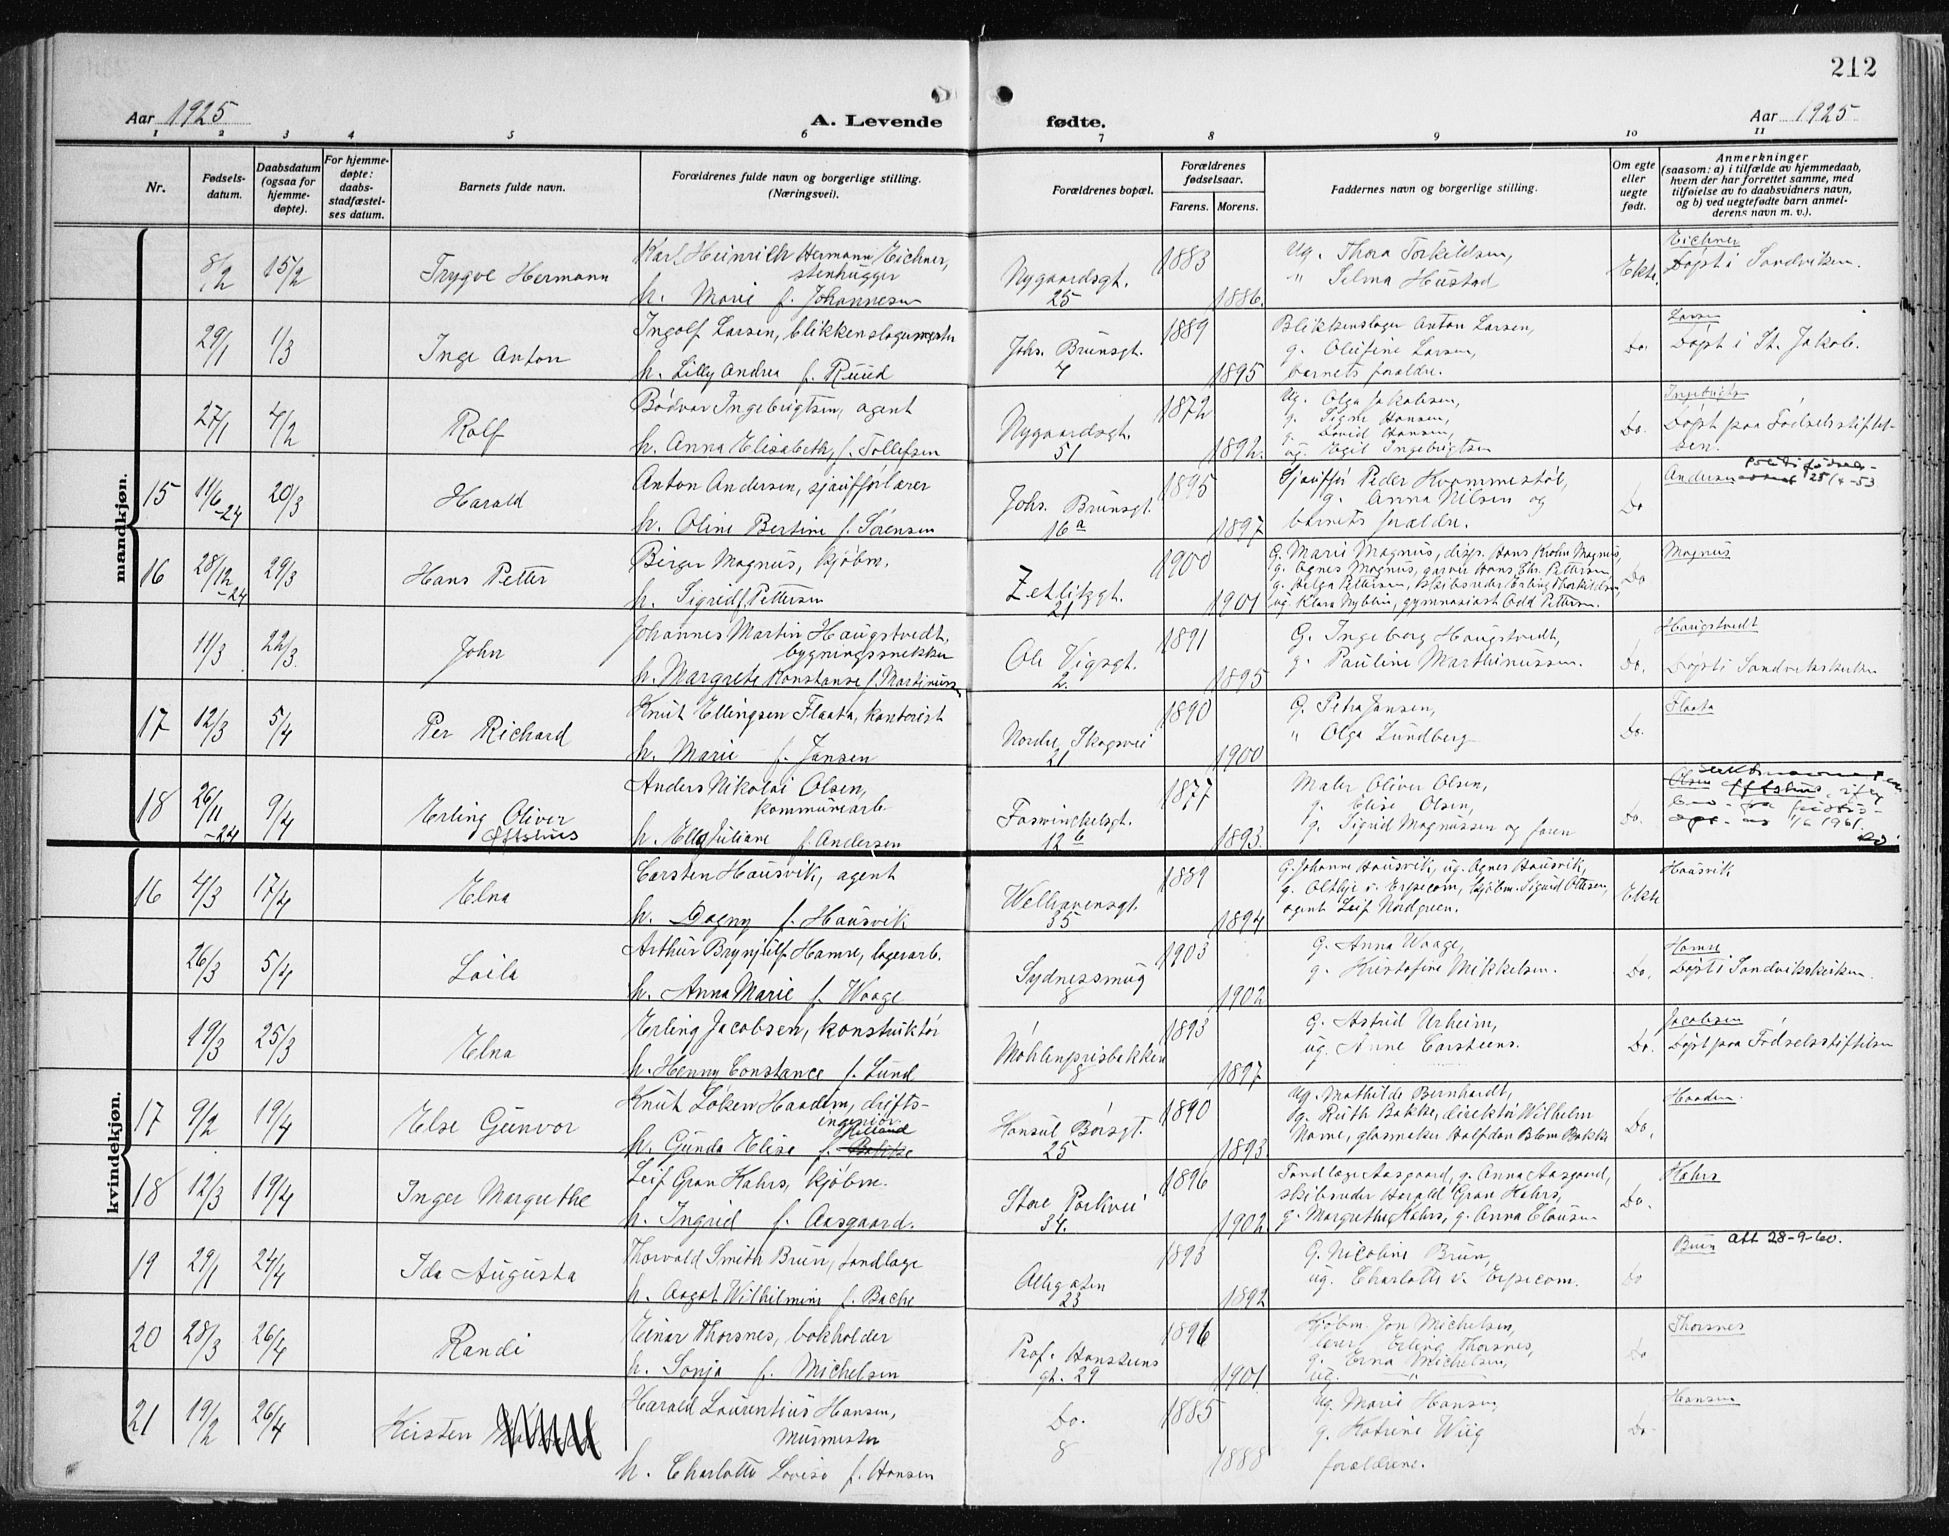 212
Aar 1925
A. Levende
fødte.
Aar 1925
1 2 3 4 5 6 7 8 9 10 11
Nr.
Fødsels-
datum.
Daabsdatum
(ogsaa for
hjemme-
døpte).
For hjemme-
døpte:
daabs-
stadfæstel-
ses datum.
Barnets fulde navn.
Forældrenes fulde navn og borgerlige stilling.
(Næringsvei).
Forældrenes bopæl.
Forældrenes
fødselsaar.
Farens. Morens.
Faddernes navn og borgerlige stilling.
Om egte
eller
uegte
født.
Anmerkninger
(saasom: a) i tilfælde av hjemmedaab,
hvem der har forrettet samme, med
tilføielse av to daabsvidners navn,
og b) ved uegtefødte barn anmel-
derens navn m. v.).
mandkjøn.
8/2 15/2 Trygve Hermann
Karl Heinrich Hermann Eichner,
stenhugger
h. Marie f. Johannesen
Nygaardsgt.
25
1883
1886.
Ug. Thora Torkildsen,
" Selma Hustad
Ekte.
Eichner
Døpt i Sandviken.
29/1 1/3 Inge Anton
Ingolf Larsen, blikkenslagermester
h. Lilly Andrea f. Ruud
Johs. Brunsgt.
7
1889
1895
Blikkenslager Anton Larsen,
g. Olufine Larsen,
barnets forældre.
Do.
Larsen
Døpt i St. Jakob.
27/1 4/2 Rolf
Bødvar Ingebrigtsen, agent
h. Anna Elisabeth, f. Tollefsen
Nygaardsgt.
51
1872
1892.
Ug. Olga Jakobsen,
g. Signe Hansen,
g. David Hansen,
ug. Egil Ingebrigtsen
Do.
Døpt paa Fødselsstiftel-
sen.
15 11/6-24 20/3 Harald
Anton Andersen, sjaufførlærer
h. Oline Bertine f. Sørensen
Johs. Brunsgt.
16 a
1895
1897
Sjauffør Peder Krommestøl,
g. Anna Nilsen og
barnets forældre.
Do
Andersen
25/4-53
16 28/12-24 29/3 Hans Petter
Birger Magnus, kjøbm.
h. Sigrid f. Pettersen
Zetlitzgt.
21
1900
1901
G. Marie Magnus, disp. Hans Krohn Magnus,
g. Agnes Magnus, garver Hans Chr. Pettersen
g. Helga Pettersen, skibsreder Erling Thorkildsen
ug. Klara Nyblin, gymnasiast Odd Pettersen.
Do
Magnus
11/3 22/3. John
Johannes Martin Haugstvedt,
bygningssnekker
h. Margrete Konstanse f. Martinussen
Ole Vigsgt.
2.
1891
1895
G. Ingeborg Haugstvedt,
g. Pauline Marthinussen.
Do.
Haugstvedt
Døpt i Sandvikskirken
17 12/3 5/4 Per Richard
Knut Ellingsen Flaata, kontorist
h. Marie f. Jansen
Nordre Skogvei
21
1890
1900
G. Petra Jansen,
" Olga Lundberg
Do.
Flaata
18 26/11-24 9/4 Erling Oliver
Øftshus
Anders Nikolai Olsen,
kommunearb
h. Ella Juliane f. Andersen
Foswinckelsgt.
12 b
1877
1893.
Maler Oliver Olsen,
g. Elise Olsen,
g. Sigrid Magnussen og faren
Do.
Olsen
1/6 1961.
kvindekjøn.
16 4/3 17/4 Elna
Carsten Hausvik, agent
h. Dagny f. Hausvik
Welhavensgt.
35
1889
1894
G. Johanne Hausvik, ug. Agnes Hausvik,
g. Oltbje v. Erpecom, kjøbm. Sigurd Ottesen,
agent Leif Nordgreen.
Ekte
Hausvik
26/3 5/4 Laila
Arthur Brynjulf Hamre, lagerarb.
h. Anna Marie f. Waage
Sydnessmug
8
1903
1902
G. Anna Waage,
g. Kristofine Mikkelsen.
Do.
Hamre
Døpt i Sandvikskirken.
19/3 25/3 Elna
Erling Jacobsen, konstruktør
h. Henny Constance f. Lund
Møhlenprisbakken
8
1893
1897
G. Astrid Urheim,
ug. Anne Carstens.
Do.
Jacobsen
Døpt paa Fødselsstiftelsen
17 9/2 19/4 Else Gunvor
Knut Løken Haadem, drifts-
ingeniør
h. Gunda Elise f.
Konsul Børsgt.
25
1890
1893
Ug. Mathilde Bernhardt,
Ug. Ruth Bakke, direktør Wilhelm
Name, glasmaker Halfdan Blom Bakke
Do,
Haadem.
18 12/3 19/4 Inger Margrethe
Leif Gran Kahrs, kjøbm.
h. Ingrid f. Aasgaard.
Store Parkvei
34.
1896
1902
Tandlæge Aasgaard, g. Anna Aasgaard,
skibsreder Harald Gran Kahrs,
g. Margrethe Kahrs, g. Anna Clausen
Do.
Kahrs
19 29/1 24/4 Ida Augusta
Thorvald Smith Brun, tandlæge
h. Aagot Wilhelmine f. Bache
Allégaten
23
1893
1892
G. Nicoline Brun,
ug. Charlotte v. Erpecom.
Do
Brun att 28-9-60.
20 28/3 26/4 Randi
Einar Thorsnes, bokholder
h. Sonja f. Michelsen
Prof. Hansteens
gt. 29
1896
1901
Kjøbm. Jon Michelsen,
lærer Erling Thorsnes,
g. Erna Michelsen,
ug. "
Do
Thorsnes
21 19/2 26/4 Kirsten
Harald Laurentius Hansen,
murmester
h. Charlotte Lovise f. Hansen
Do.
8
1885
1888
Ug. Marie Hansen,
g. Katrine Wiig
forældrene.
Do.
Hansen